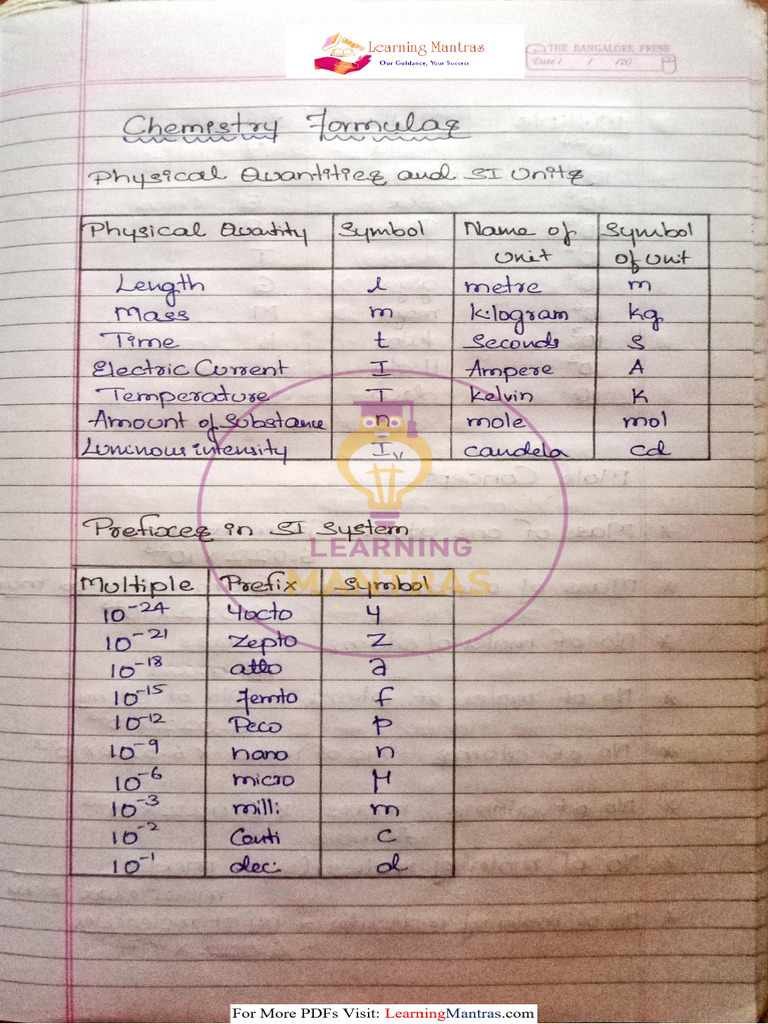 Learning Mantras
Our Guidance, Your Success
THE BANGALORE PRESS
Date / / /20
Chemistry Formulas
Physical Quantities and SI Units
Physical Quantity Symbol Name of Unit Symbol of Unit
Length l metre m
Mass m kilogram kg
Time t Seconds s
Electric Current I Ampere A
Temperature T kelvin K
Amount of Substance n mole mol
Luminous intensity Iv candela cd
Prefixes in SI System
LEARNING
MANTRAS
Multiple Prefix Symbol
10⁻²⁴ Yocto y
10⁻²¹ Zepto z
10⁻¹⁸ atto a
10⁻¹⁵ femto f
10⁻¹² Peco p
10⁻⁹ nano n
10⁻⁶ micro μ
10⁻³ milli m
10⁻² Centi c
10⁻¹ deci d
For More PDFs Visit: LearningMantras.com